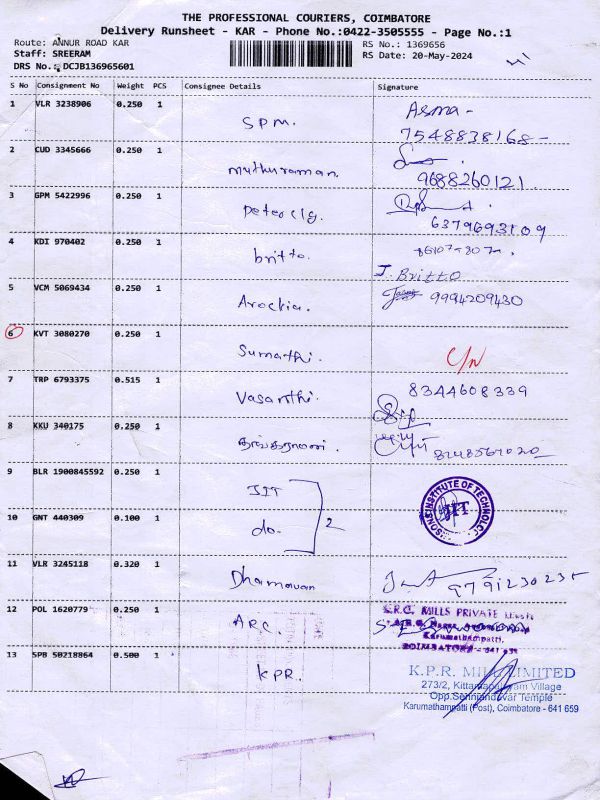 THE PROFESSIONAL COURIERS, COIMBATORE
Delivery Runsheet - KAR - Phone No.:0422-3505555 - Page No.:1
Route: ANNUR ROAD KAR RS No.: 1369656
Staff: SREERAM RS Date: 20-May-2024
DRS No.: DCJB136965601
S No Consignment No Weight PCS Consignee Details Signature
1 VLR 3238906 0.250 1 SPM. Asma-
7548838168-
2 CUD 3345666 0.250 1 muthuraman.
9688260121
3 GPM 5422996 0.250 1 peter clg.
6379693109
4 KDI 970402 0.250 1 britto.
J. Britto
5 VCM 5069434 0.250 1 Arockia. 9994209430
6 KVT 3080270 0.250 1 Sumathi. C/N
7 TRP 6793375 0.515 1 Vasanthi. 8344608339
8 KKU 340175 0.250 1 தங்கமணி.
9 BLR 1900845592 0.250 1 JIT
10 GNT 440309 0.100 1 do. 2
INSTITUTE OF TECHNOLOGY
JIT
11 VLR 3245118 0.320 1 9791230235
12 POL 1620779 0.250 1 ARC.
MILLS PRIVATE
Karumathampatti,
COIMBATORE - 641
13 SPB 50218864 0.500 1 KPR.
K.P.R. MILL LIMITED
273/2, Village
Opp. Temple
Karumathampatti (Post), Coimbatore - 641 659